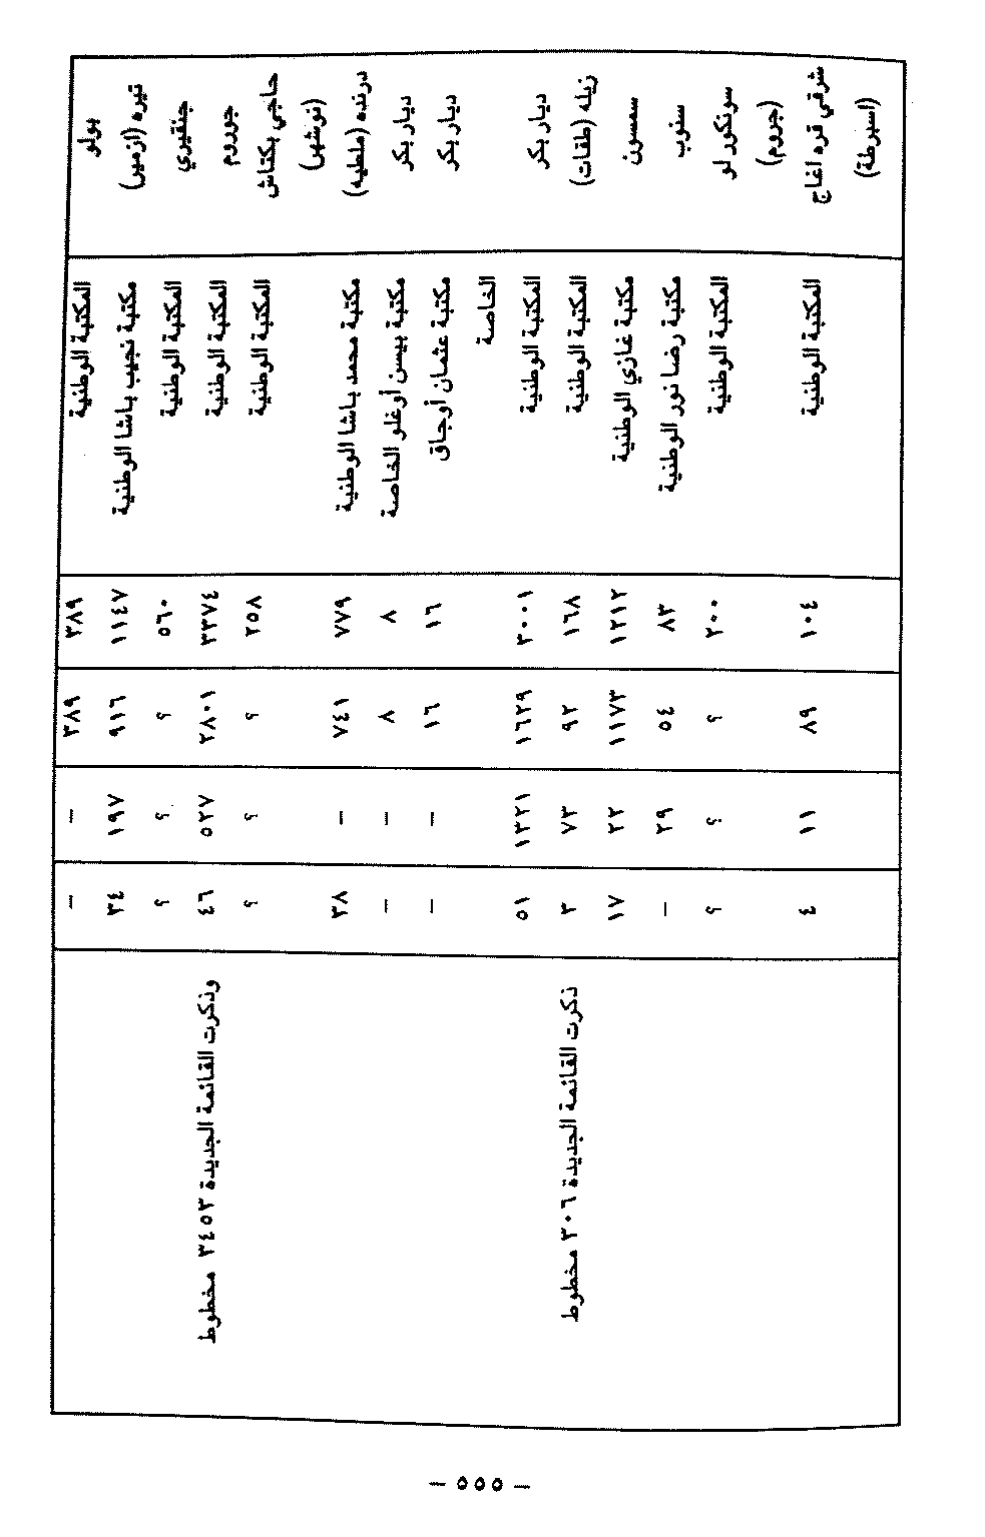 بولو المكتبة الوطنية ٣٨٩ ٣٨٩ – –
تيره (ازمير) مكتبة نجيب باشا الوطنية ١١٤٨ ٩١٦ ١٩٧ ٣٤
جنقيري المكتبة الوطنية ٥٦٠ ؟ ؟ ؟
جوروم المكتبة الوطنية ٣٣٧٤ ٢٨٠١ ٥٢٧ ٤٦ وذكرت القائمة الجديدة ٣٤٥٣ مخطوط
حاجي بكتاش المكتبة الوطنية ٢٥٧ ؟ ؟ ؟
(نوشهر)
درنده (ملطيه) مكتبة محمد باشا الوطنية ٨٧٩ ٨٤١ – ٣٨
ديار بكر مكتبة بيسن أوغلو الخاصة ٧ ٧ – –
ديار بكر مكتبة عثمان أوجاق ١٦ ١٦ – –
الخاصة
ديار بكر المكتبة الوطنية ٣٠٠١ ١٦٢٩ ١٣٢١ ٥١
زيله (طقات) المكتبة الوطنية ١٦٨ ٩٢ ٧٣ ٣ ذكرت القائمة الجديدة ٣٠٦ مخطوط
سمسون مكتبة غازي الوطنية ١٢١٢ ١١٧٢ ٢٢ ١٨
سنوب مكتبة رضا نور الوطنية ٨٣ ٥٤ ٢٩ –
سونكورلو المكتبة الوطنية ٢٠٠ ؟ ؟ ؟
(جروم)
شرقي قره اغاج المكتبة الوطنية ١٠٤ ٨٩ ١١ ٤
(اسبرطة)
– ٥٥٥ –